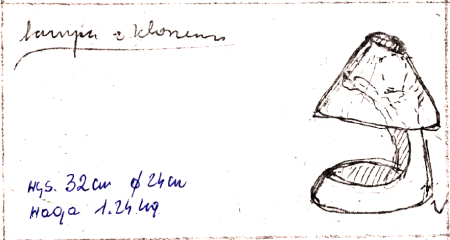 lampa z kloszem
wys. 32 cm ϕ 24 cm
waga 1.24 kg